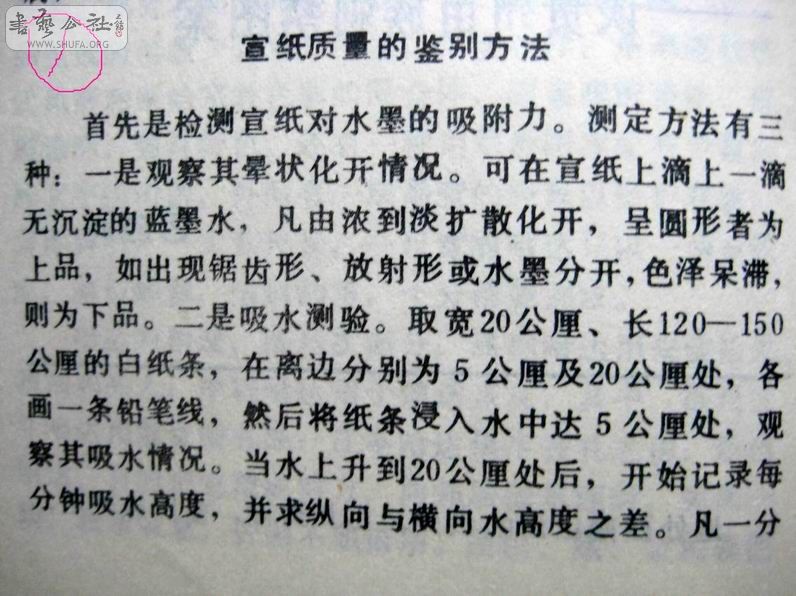 書藝公社
WWW.SHUFA.ORG
宣纸质量的鉴别方法
首先是检测宣纸对水墨的吸附力。测定方法有三
种：一是观察其晕状化开情况。可在宣纸上滴上一滴
无沉淀的蓝墨水，凡由浓到淡扩散化开，呈圆形者为
上品，如出现锯齿形、放射形或水墨分开，色泽呆滞，
则为下品。二是吸水测验。取宽20公厘、长120—150
公厘的白纸条，在离边分别为5公厘及20公厘处，各
画一条铅笔线，然后将纸条浸入水中达5公厘处，观
察其吸水情况。当水上升到20公厘处后，开始记录每
分钟吸水高度，并求纵向与横向水高度之差。凡一分